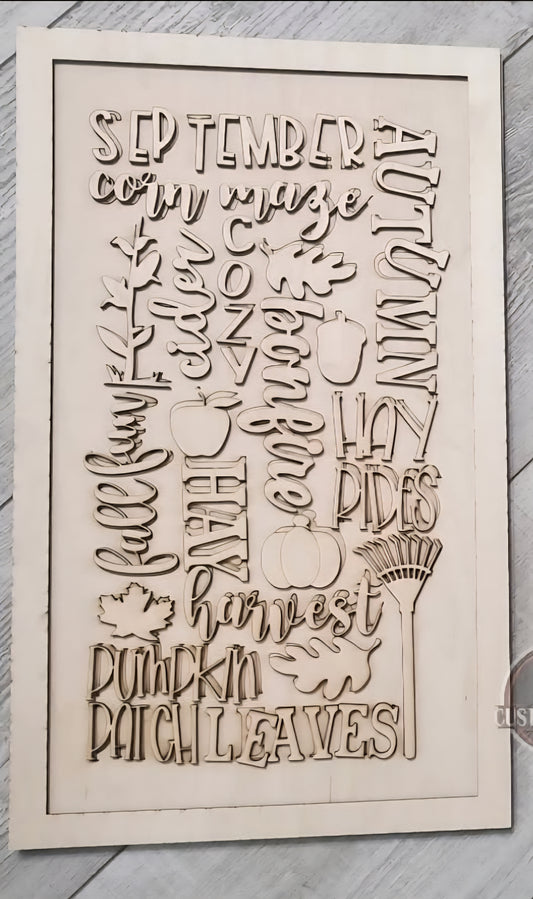 SEPTEMBER
AUTUMN
corn maze
cider
COZY
bonfire
HAY
RIDES
fall fun
HAY
harvest
PUMPKIN
PATCH
LEAVES